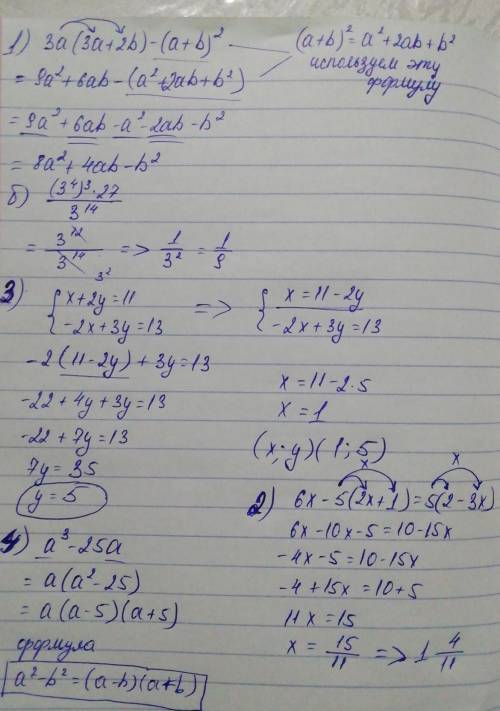 1) 3a(3a+2b)-(a+b)² (a+b)²=a²+2ab+b²
используем эту
формулу
= 9a²+6ab-(a²+2ab+b²)
= 9a²+6ab-a²-2ab-b²
= 8a²+4ab-b²
б) (3⁴)³·27
3¹⁴
= 3¹² / 3¹⁴ 3² => 1/3² = 1/9
3) { x+2y=11 => { x=11-2y
-2x+3y=13 -2x+3y=13
-2(11-2y)+3y=13
-22+4y+3y=13
-22+7y=13
7y=35
y=5
x=11-2·5
x=1
(x;y)(1;5)
2) 6x-5(2x+1)=5(2-3x)
x x
6x-10x-5=10-15x
-4x-5=10-15x
-4+15x=10+5
11x=15
x=15/11 => 1 4/11
4) a³-25a
= a(a²-25)
= a(a-5)(a+5)
формула
a²-b²=(a-b)(a+b)